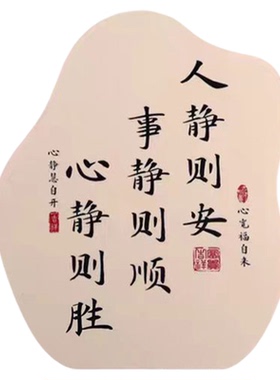 人静则安
事静则顺
心静则胜
心宽福自来
心静慧自开